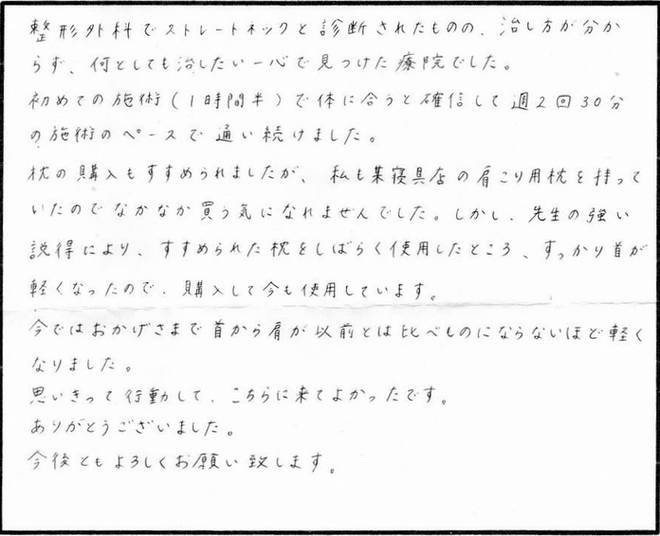 整形外科でストレートネックと診断されたものの、治し方が分か
らず、何としても治したい一心で見つけた療院でした。
初めての施術(1時間半)で体に合うと確信して週2回30分
の施術のペースで通い続けました。
枕の購入もすすめられましたが、私も某寝具店の肩こり用枕を持って
いたのでなかなか買う気になれませんでした。しかし、先生の強い
説得により、すすめられた枕をしばらく使用したところ、すっかり首が
軽くなったので、購入して今も使用しています。
今ではおかげさまで首から肩が以前とは比べものにならないほど軽く
なりました。
思いきって行動して、こちらに来てよかったです。
ありがとうございました。
今後ともよろしくお願い致します。